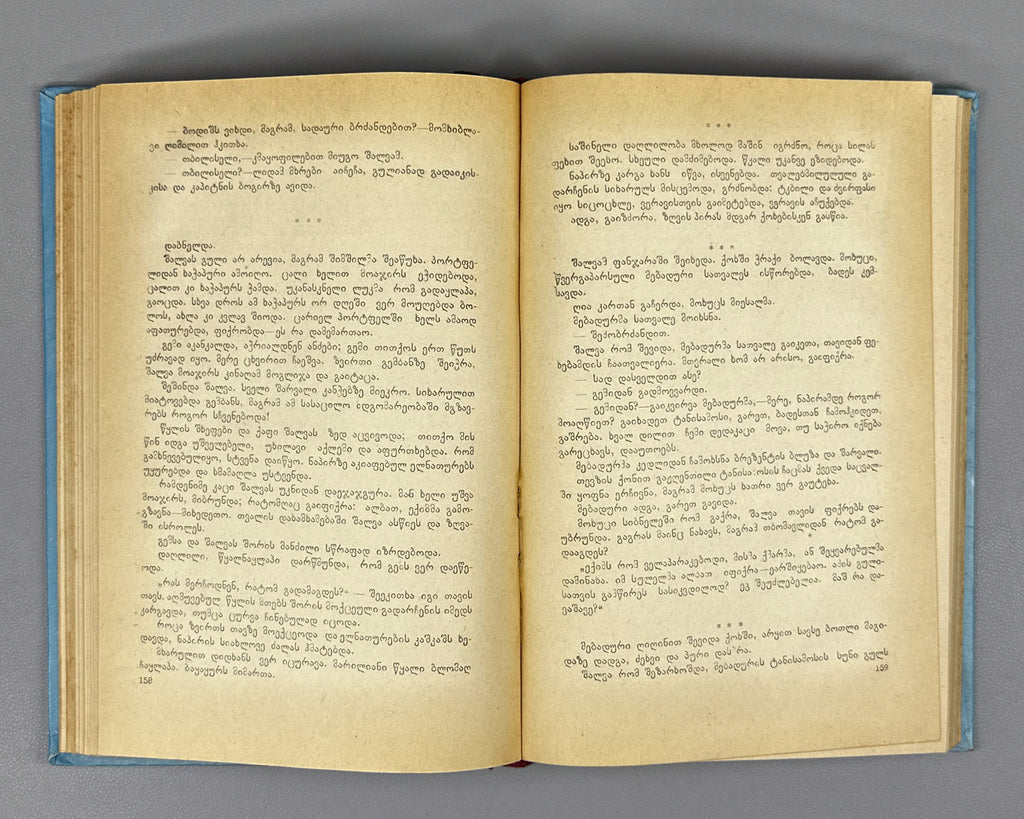 — ბოდიშს ვიხდი, მაგრამ, სადაური ბრძანდებით?—მომხიბლა-
ვი ღიმილით ჰკითხა.
— თბილისელი,—კმაყოფილებით მიუგო შალვამ.
— თბილისელი?—ლიდამ მხრები აიჩეჩა, გულიანად გადაიკის-
კისა და კაპიტნის ბოგირზე ავიდა.
* * *
დაბნელდა.
შალვას გული არ არევია, მაგრამ შიმშილმა შეაწუხა. პორტფე-
ლიდან ხაჭაპური ამოიღო. ცალი ხელით მოაჯირს ეჭიდებოდა,
ცალით კი ხაჭაპურს ჭამდა. უკანასკნელი ლუკმა რომ გადაყლაპა,
გაოცდა. სხვა დროს ამ ხაჭაპურს ორ დღეში ვერ მოუღებდა ბო-
ლოს, ახლა კი კვლავ შიოდა. ცარიელ პორტფელში ხელს ამაოდ
აფათურებდა, ფიქრობდა—ეს რა დამემართაო.
გემი აკანკალდა, აჭრიალდნენ ანძები; გემი თითქოს ერთ წუთს
უძრავად იყო. მერე ცხვირით ჩაეშვა. ზვირთი გემბანზე შეიჭრა,
შალვა მოაჯირს კინაღამ მოგლიჯა და გაიტაცა.
შეშინდა შალვა. სველი შარვალი კანჭებზე მიეკრო. სიხარულით
მიატოვებდა გემბანს, მაგრამ ამ სასაცილო მდგომარეობაში მგზავ-
რებს როგორ სჩვენებოდა!
წყლის შხეფები და ქაფი შალვას ზედ აცვივოდა; თითქო მის
წინ იდგა უშველებელი, უხილავი აქლემი და აფურთხებდა. რომ
გამხნევებულიყო, სტვენა დაიწყო. ნაპირზე აკიაფებულ ელნათურებს
უყურებდა და ხმამაღლა უსტვენდა.
რამდენიმე კაცი შალვას უკნიდან დაეჯაჯგურა. მან ხელი უშვა
მოაჯირს, მიბრუნდა; რატომღაც გაიფიქრა: ალბათ, ექიმმა გამო-
გზავნა—მიხედეთო. თვალის დახამხამებაში შალვა ასწიეს და ზღვა-
ში ისროლეს.
გემსა და შალვას შორის მანძილი სწრაფად იზრდებოდა.
დაღლილი, წყალნაყლაპი დარწმუნდა, რომ გემს ვერ დაეწე-
ოდა.
„რას მერჩოდნენ, რატომ გადამაგდეს?“ — შეეკითხა იგი თავის
თავს. აღმუვებულ წყლის მთებს შორის მოქცეული გადარჩენის იმედს
კარგავდა, თუმცა ცურვა ჩინებულად იცოდა.
როცა ზვირთს თავზე მოექცეოდა და ელნათურების კაშკაშს ხე-
დავდა, ნაპირის სიახლოვე ძალას ჰმატებდა.
მხარულით დიდხანს ვერ იცურავა. მარილიანი წყალი ბლომად
ჩაყლაპა. ბაყაყურს მიმართა.
158
* * *
საშინელი დაღლილობა მხოლოდ მაშინ იგრძნო, როცა სილას
ფეხით შეეხო. სხეული დამძიმებოდა. წყალი უკანვე ეზიდებოდა.
ნაპირზე კარგა ხანს იწვა, ისვენებდა. თვალებმილულული გა-
დარჩენის სიხარულს მისცემოდა, გრძნობდა: ტკბილი და ძვირფასი
იყო სიცოცხლე, ვერავისთვის გაიმეტებდა, ვერავის აჩუქებდა.
ადგა, გაიზმორა, ზღვის პირას მდგარ ქოხებისკენ გასწია.
* * *
შალვამ ფანჯარაში შეიხედა. ქოხში ჭრაქი ბოლავდა. მოხუცი,
წვერგაპარსული მებადური სათვალეს ისწორებდა, ბადეს კემ-
სავდა.
ღია კართან გაჩერდა, მოხუცს მიესალმა.
მებადურმა სათვალე მოიხსნა.
— შემობრძანდით.
შალვა რომ შევიდა, მებადურმა სათვალე გაიკეთა, თავიდან ფე-
ხებამდის ჩაათვალიერა. მთვრალი ხომ არ არისო, გაიფიქრა.
— სად დასველდით ასე?
— გემიდან გადმოვვარდი.
— გემიდან?—გაიკვირვა მებადურმა,—მერე, ნაპირამდე როგორ
მოაღწიეთ? გაიხადეთ ტანისამოსი, გარეთ, ბადესთან ჩამოჰკიდეთ,
გაშრება. ხვალ დილით ჩემი დედაკაცი მოვა, თუ საჭირო იქნება
გარეცხავს, დააუთოებს.
მებადურმა კედლიდან ჩამოხსნა ბრეზენტის ბლუზა და შარვალი.
თევზის ქონით გაჟღენთილი ტანისამოსის ჩაცმას ქვედა საცვალ-
ში ყოფნა ერჩივნა, მაგრამ მოხუცს ხათრი ვერ გაუტეხა.
მებადური ადგა, გარეთ გავიდა.
მოხუცი სიბნელეში რომ გაქრა, შალვა თავის ფიქრებს და-
უბრუნდა. გაგრას მაინც ნახავს, მაგრამ თბომავლიდან რატომ გა-
დააგდეს?
„ექიმს რომ ველაპარაკებოდი, მისმა ქმარმა, ან შეყვარებულმა
დამინახა. იმ სულელმა ალბათ იფიქრა—ეარშიყებაო. ამის გული-
სათვის გამწირეს სასიკვდილოდ? ეგ შეუძლებელია. მაშ რა და-
ვაშავე?“
* * *
მებადური ღიღინით შევიდა ქოხში, არყით სავსე ბოთლი მაგი-
დაზე დადგა, ძეხვი და პური დასჭრა.
შალვა რომ შეზარხოშდა, მებადურის ტანისამოსის სუნი გულს
159